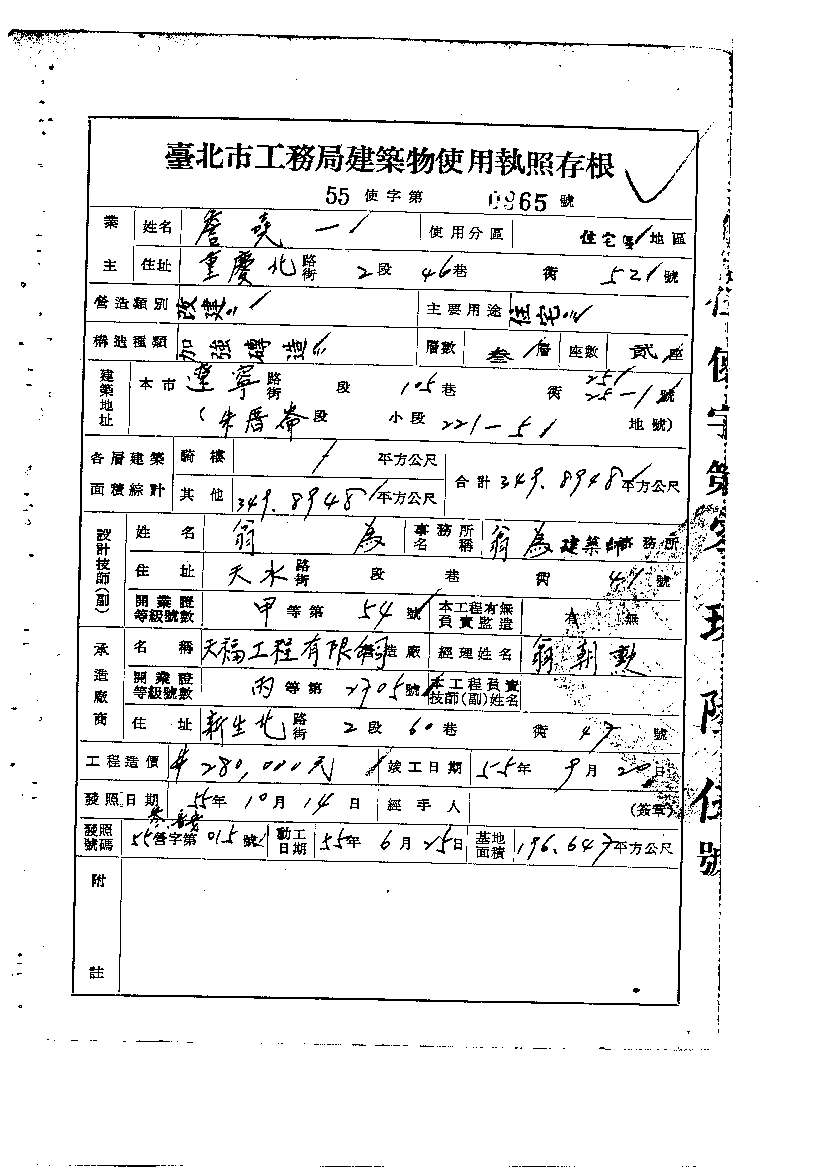 臺北市工務局建築物使用執照存根
55 使字第 0865 號
業主 姓名 詹堯一 使用分區 住宅 地區
住址 重慶北 路街 2 段 46 巷 衖 521 號
營造類別 改建 主要用途 住宅
構造種類 加強磚造 層數 叁 層 座數 貳 座
建築地址 本市 遼寧 路街 段 105 巷 衖 25-1 號
251
(朱厝崙 段 小段 221-51 地號)
各層建築面積綜計 騎樓 / 平方公尺 合計 349.8948 平方公尺
其他 349.8948 平方公尺
設計技師(副) 姓名 翁為 事務所名稱 翁為建築師事務所
住址 天水 路街 段 巷 衖 41 號
開業證等級號數 甲 等第 54 號 本工程有無負責監造 有 無
承造廠商 名稱 天福工程有限公司 營造廠 經理姓名 翁朝勲
開業證等級號數 丙 等第 2705 號 本工程負責技師(副)姓名
住址 新生北 路街 2 段 60 巷 衖 47 號
工程造價 280,000元 竣工日期 55年 9月 20日
發照日期 55年 10月 14日 經手人 (簽章)
發照號碼 55營字第 015 號 動工日期 55年 6月 25日 基地面積 196.647 平方公尺
附註